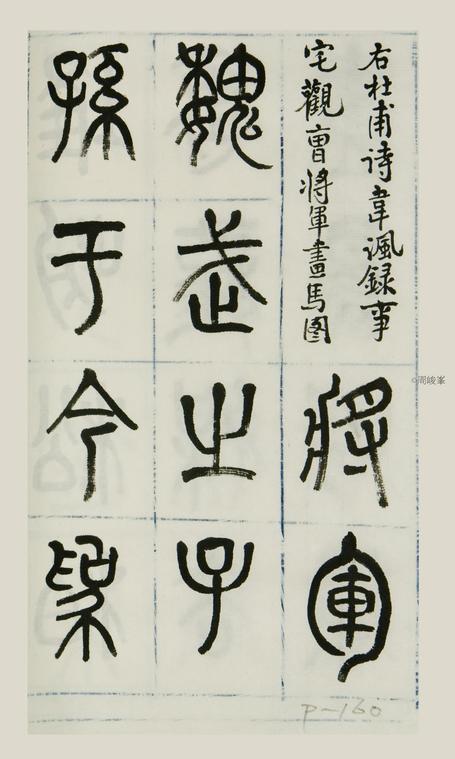 右杜甫诗韋諷録事
宅觀曹將軍畫馬图
將軍
魏武之子
孫于今為
©周峻峯
P-160